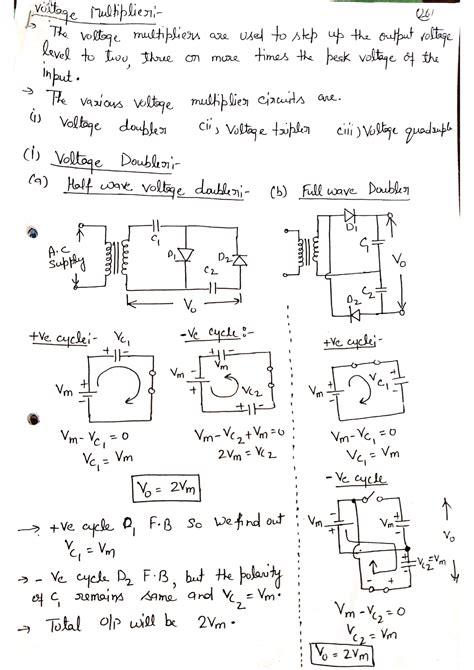 Voltage Multiplier:-
(26)
→ The voltage multipliers are used to step up the output voltage
level to two, three or more times the peak voltage of the
input.
→ The various voltage multiplier circuits are.
(i) Voltage doubler (ii) Voltage tripler (iii) Voltage quadruple
(i) Voltage Doubler:-
(a) Half wave voltage doubler:- (b) Full wave Doubler
A.C
Supply
C1
D1
D2
C2
Vo
D1
C1
C2
D2
Vo
+ve cycle:-
VC1
+ -
Vm
+
-
Vm - VC1 = 0
VC1 = Vm
-ve cycle:-
+ -
Vm
Vm
-
+
VC2
+ -
Vm - VC2 + Vm = 0
2Vm = VC2
Vo = 2Vm
→ +ve cycle D1 F.B So we find out
VC1 = Vm
→ - Ve cycle D2 F.B, but the polarity
of C1 remains same and VC2 = Vm.
→ Total O/P will be 2Vm.
+ve cycle:-
Vm
+
-
VC1
+
-
Vm - VC1 = 0
VC1 = Vm
-Ve cycle
Vm
-
+
Vm
+
-
VC2 = Vm
+
-
- +
Vo
Vm - VC2 = 0
VC2 = Vm
Vo = 2Vm